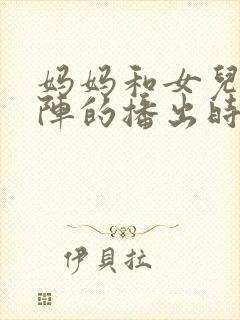 妈妈和女兒
陣的播出時
伊貝拉